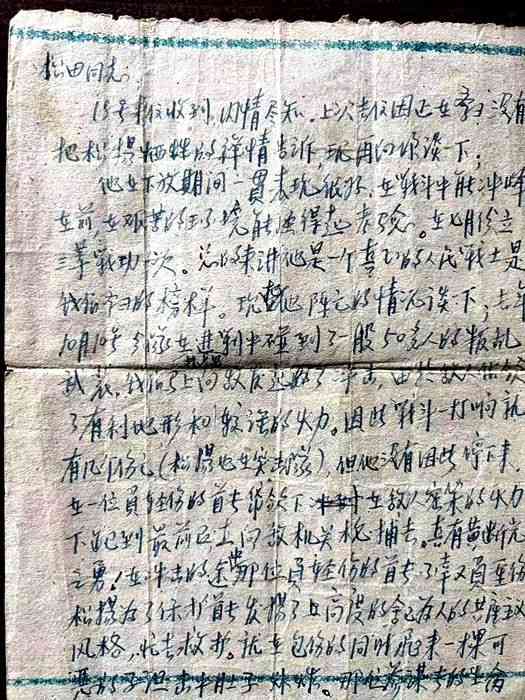 松田同志:
15号来信收到,内情尽知。上次去信因正在 没有
把松揚牺牲的详情告诉,现再向你谈一下:
他在下放期间一贯表现很好,在战斗中能冲峰
在前,在艰苦的环境能经得起考验。在七月份立
三等战功一次。总的来讲他是一个真正的人民战士是
我们学习的榜样。现就他阵亡的情况谈一下:去年
10月10号今 在进剿中碰到了一股50多人的叛乱
武装,我们马上向敌人 了冲击,由于敌人占领
了有利地形和较强的火力。因此战斗一打响就
有几个伤亡(松揚也在突击队),但他没有因此停下来,
在一位员轻伤的首长带领下 在敌人密集的火力
下跑到最前面去向敌机关枪捕去。真有黄断光
之勇!在冲击的途中那位员轻伤的首长又员重伤
松揚为了保护首长发揚了 高度的舍己为人的共产主义
风格,忙去救护。就在包伤的同时飛来一棵可
恶的子弹击中肚子 炸。那 谋未的生命